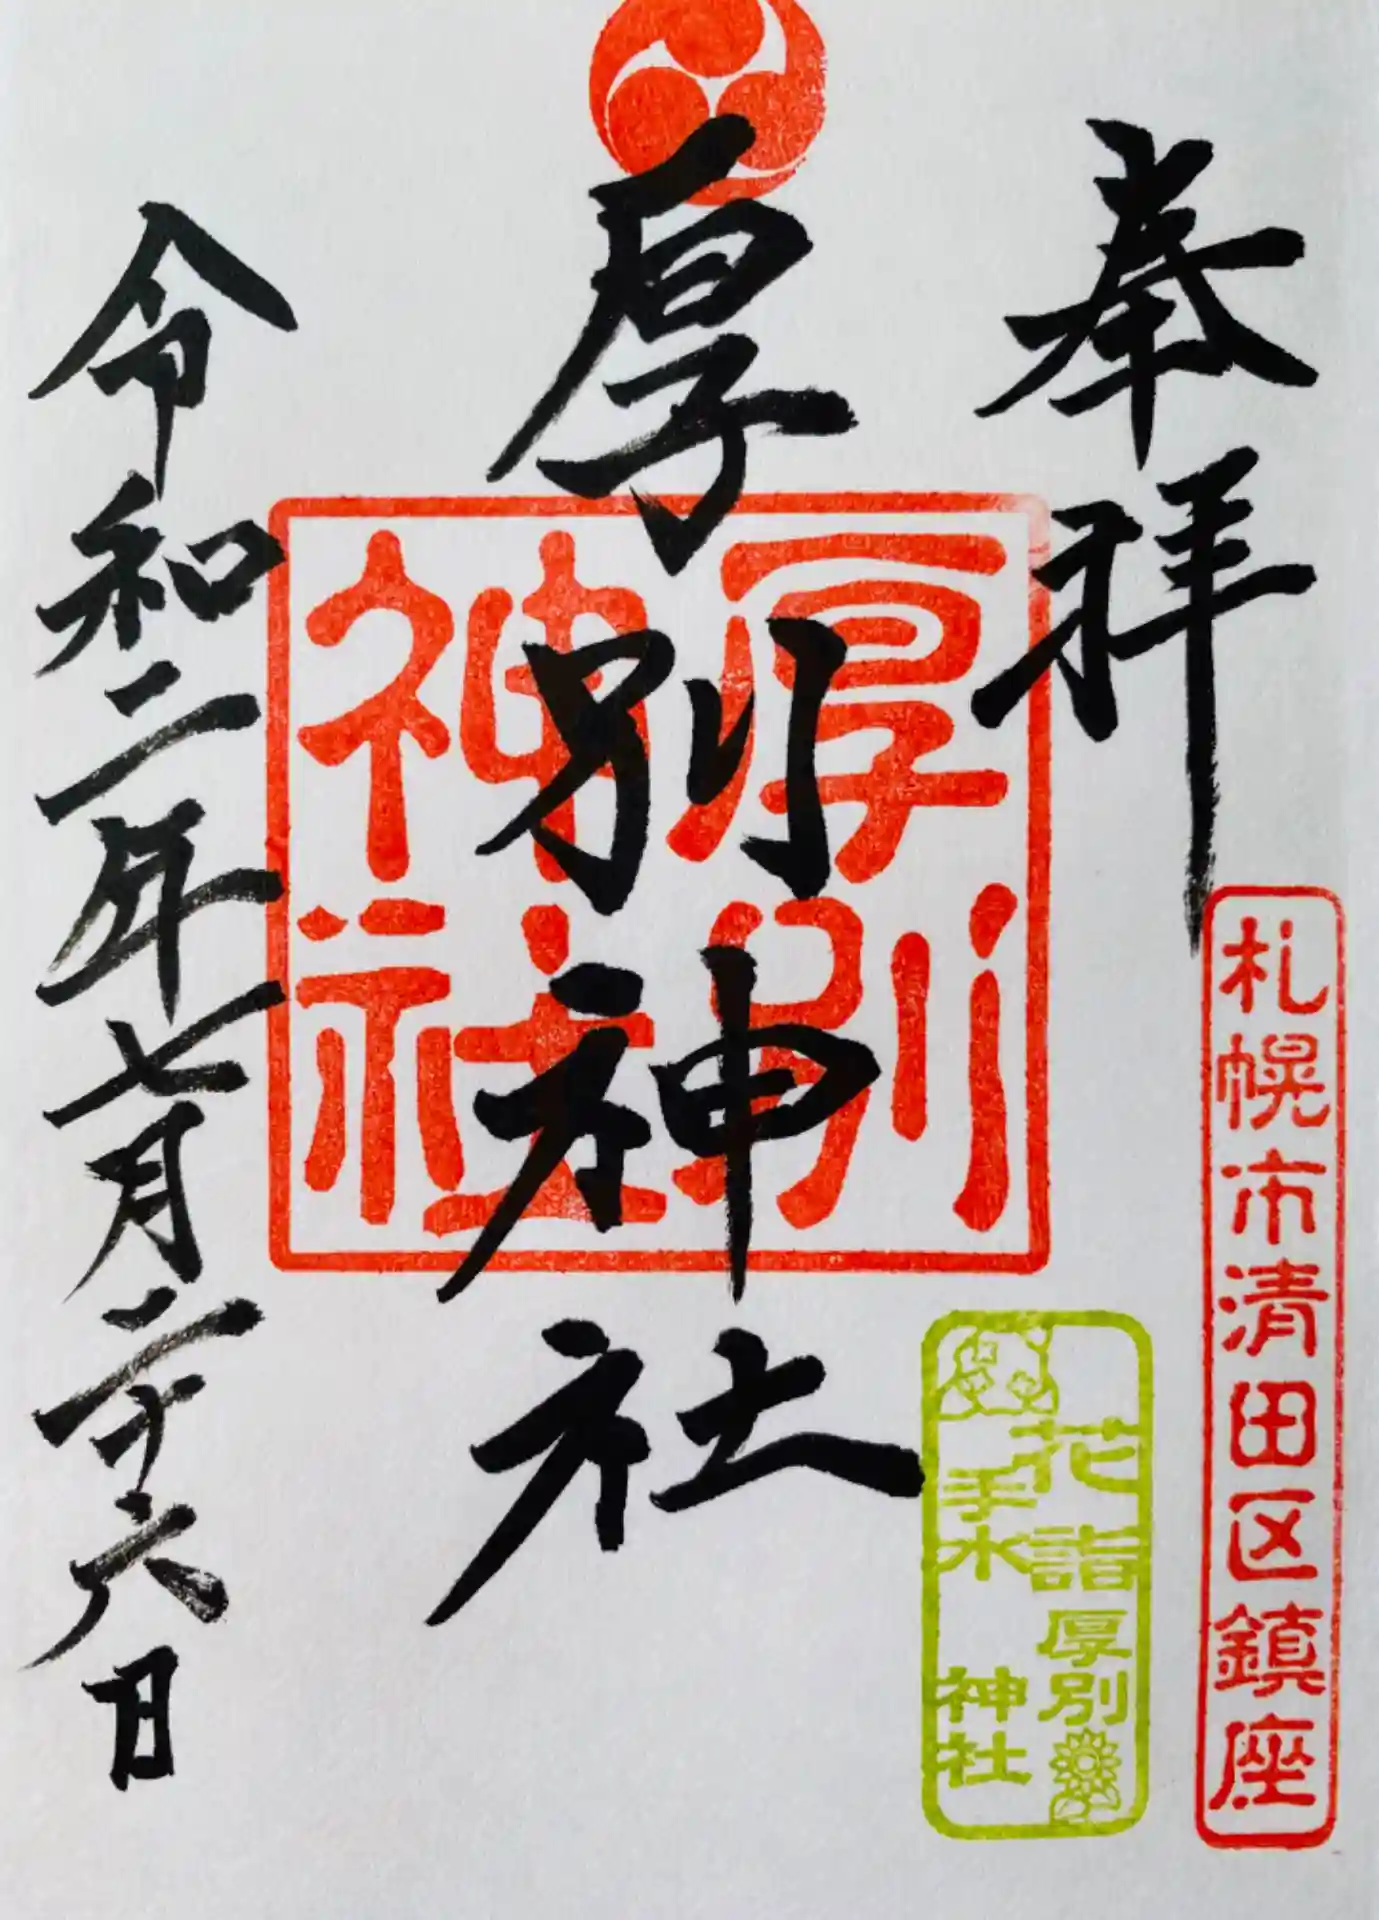 奉拝
札幌市清田区鎮座
花詣厚別
手水神社
厚別神社
厚別
神社
令和二年七月二十六日